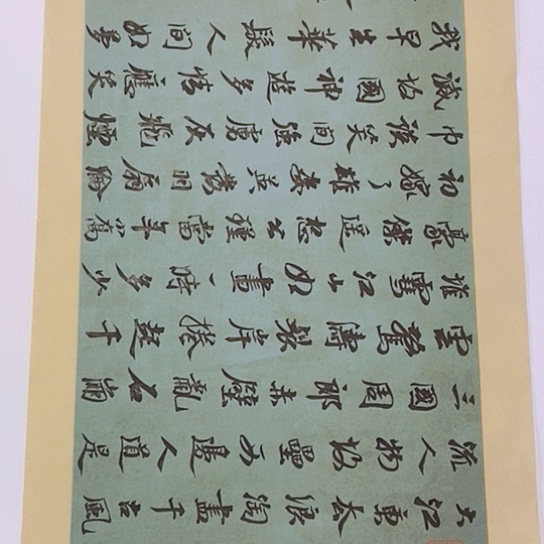 大江東去浪淘盡千古風
流人物故壘西邊人道是
三國周郎赤壁亂石崩
雲驚濤裂岸捲起千
堆雪江山如畫一時多少
豪傑遙想公瑾當年小喬
初嫁了雄姿英發羽扇綸
巾談笑間強虜灰飛煙
滅故國神遊多情應笑
我早生華髮人間如夢